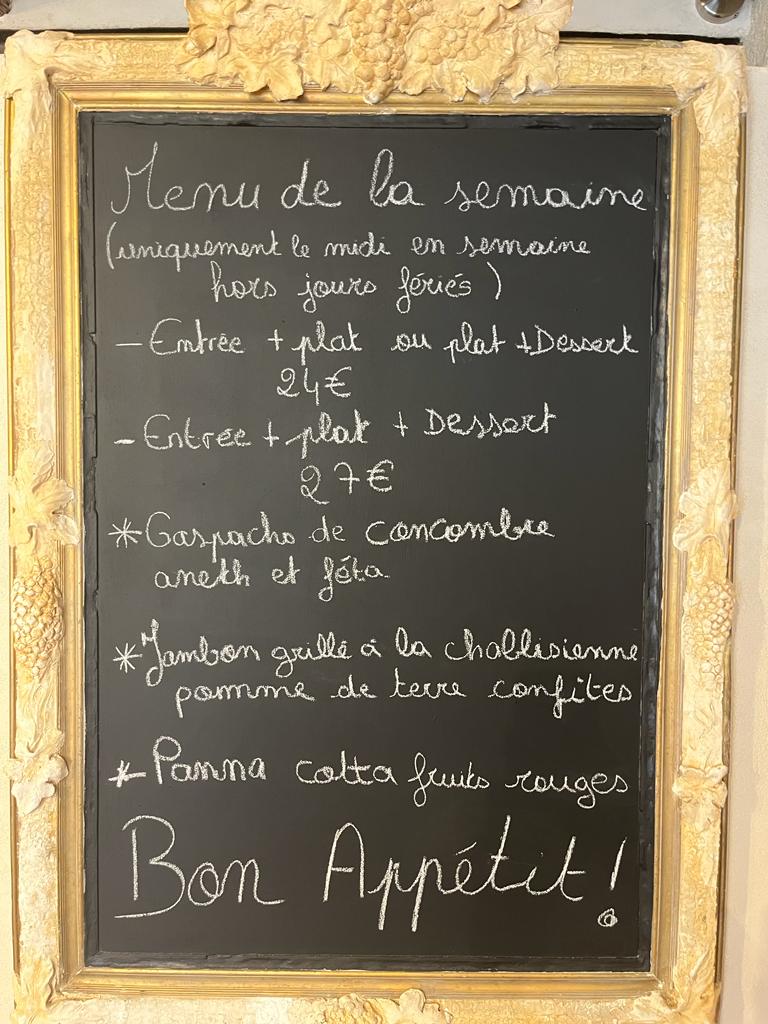 Menu de la semaine
(uniquement le midi en semaine
hors jours fériés)
- Entrée + plat ou plat + Dessert
24€
- Entrée + plat + Dessert
27€
* Gaspacho de concombre
aneth et féta
* Jambon grillé à la chablisienne
pomme de terre confites
* Panna cotta fruits rouges
Bon Appétit !